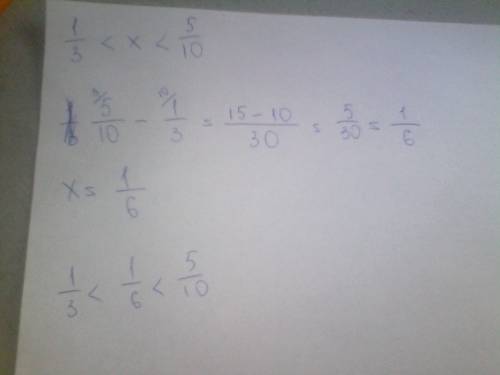 1/3 < x < 5/10
3/ 5/10 - 10/ 1/3 = 15-10/30 = 5/30 = 1/6
x = 1/6
1/3 < 1/6 < 5/10